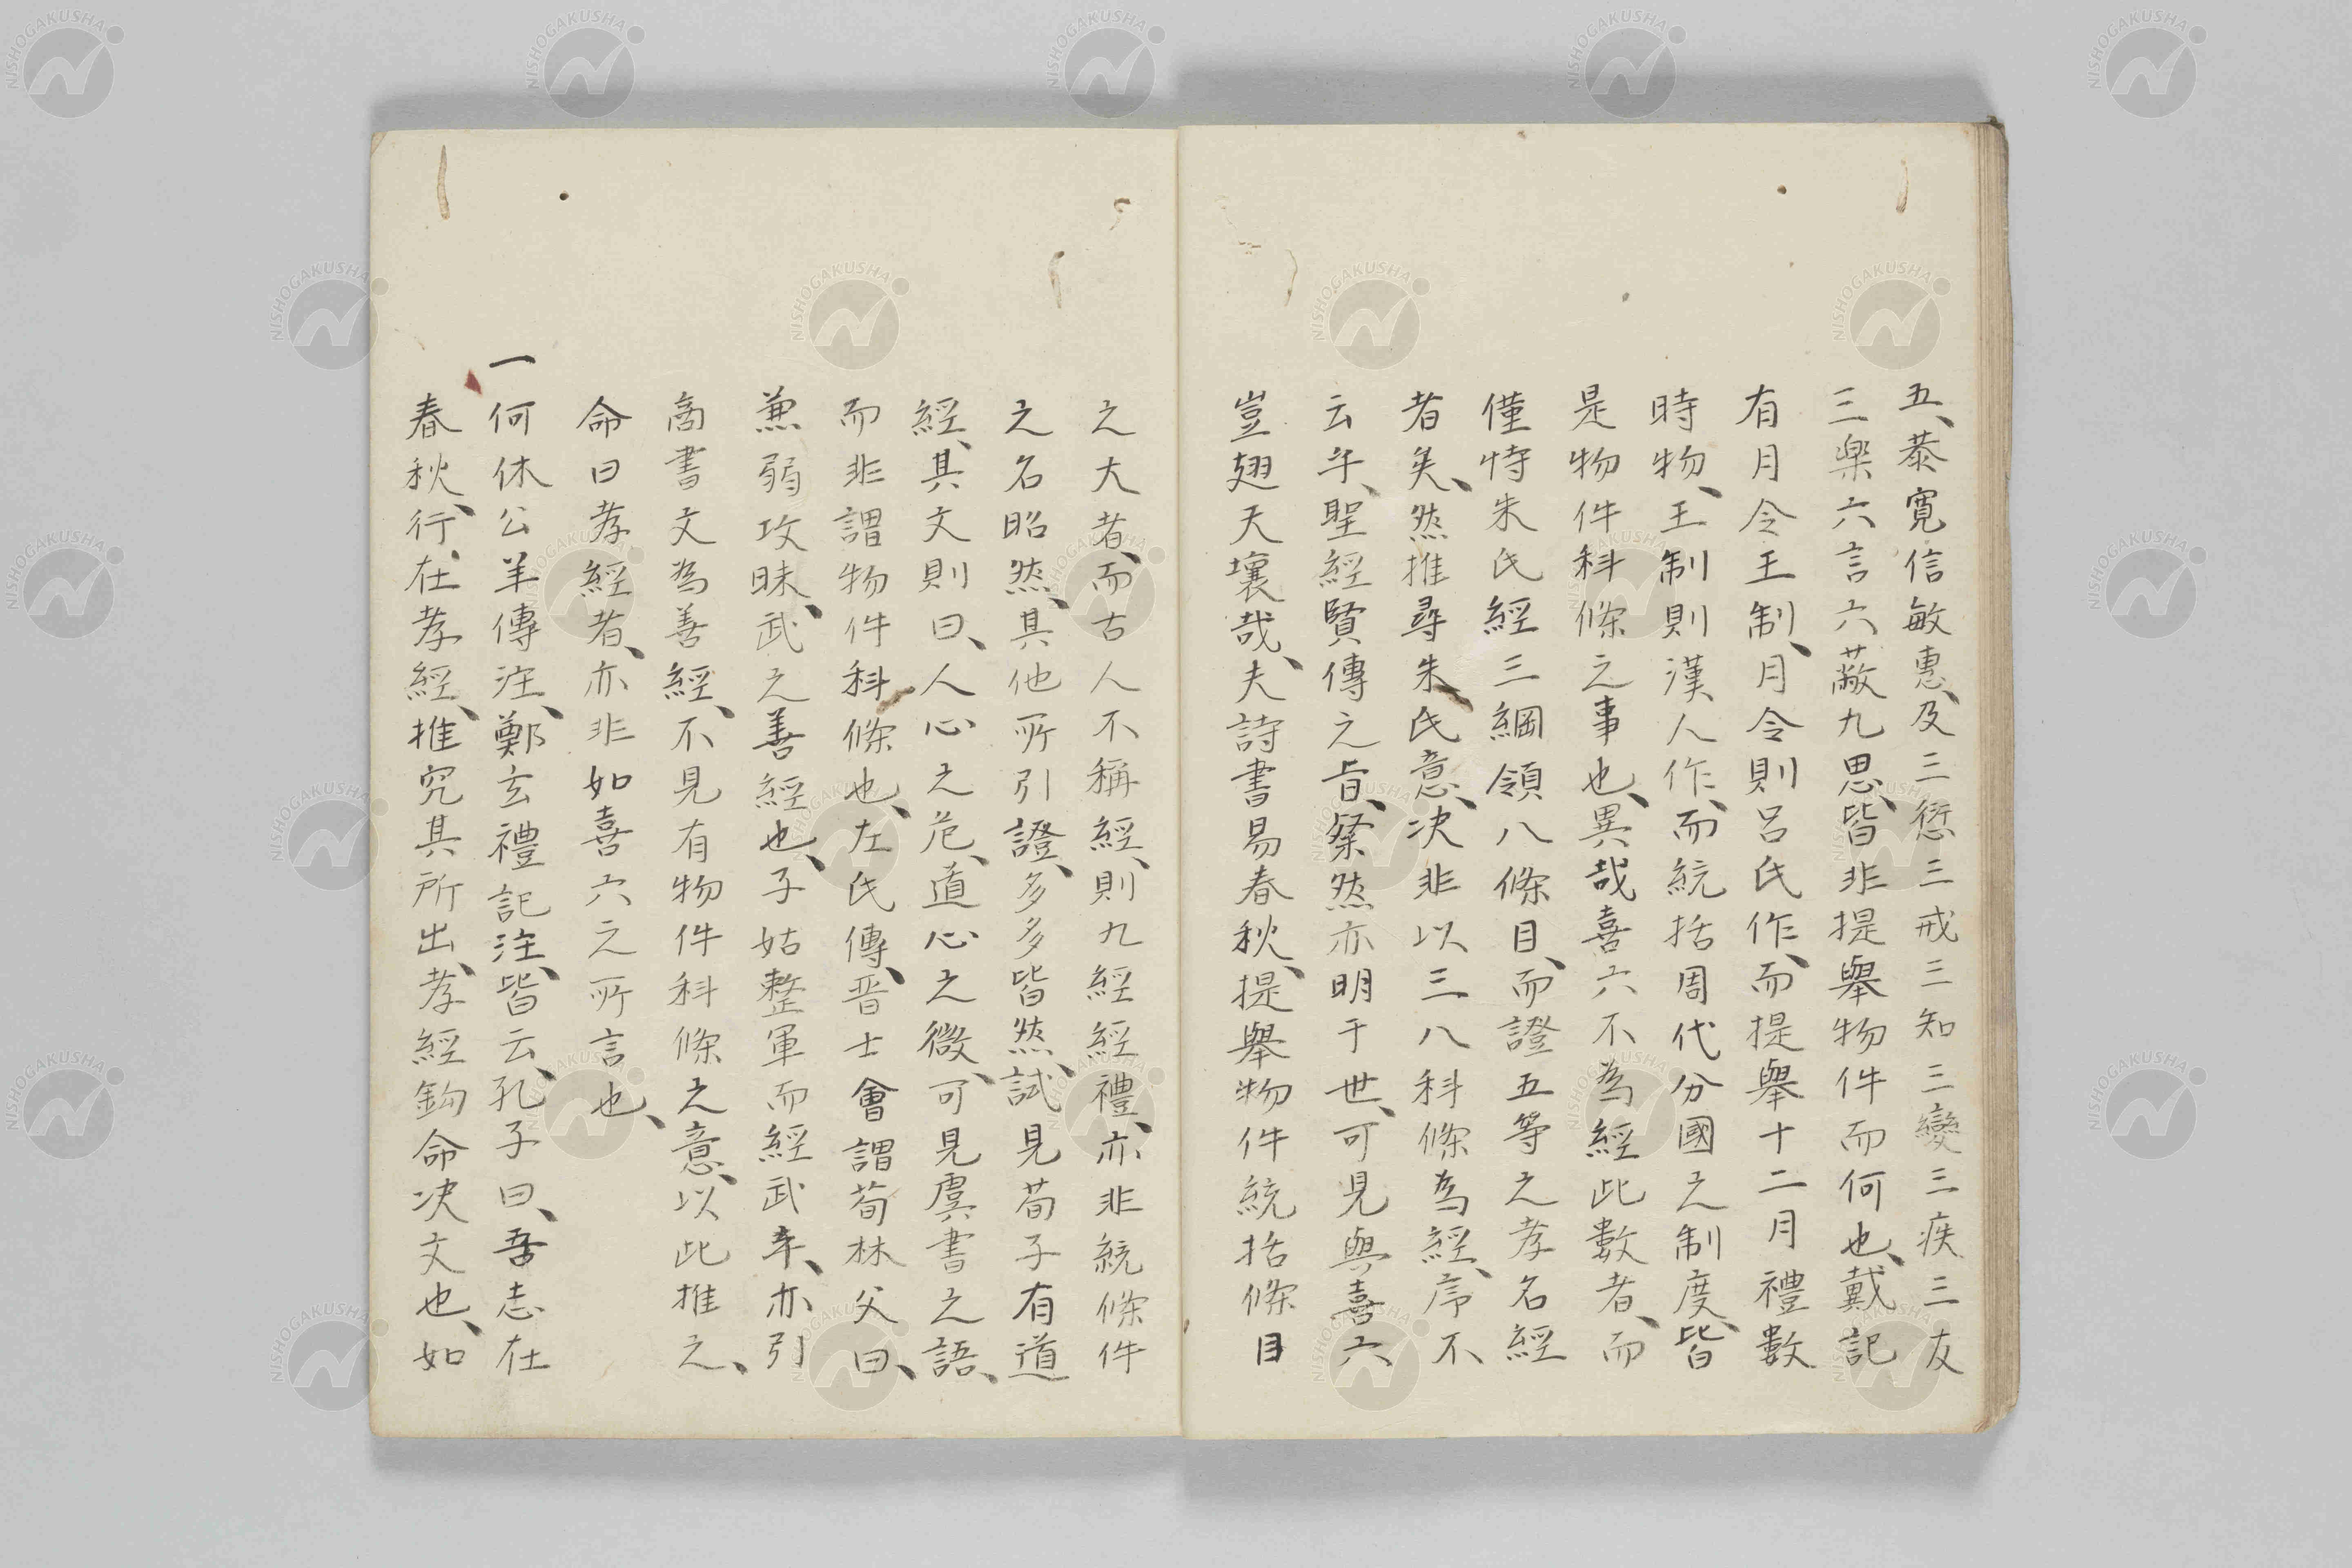 五、恭寛信敏惠、及三愆三戒三知三變三疾三友
三楽六言六蔽九思、皆非提舉物件而何也、戴記
有月令王制、月令則呂氏作、而提舉十二月禮數
時物、王制則漢人作、而統括周代分國之制度、皆
是物件科條之事也、異哉喜六不為經此數者、而
僅恃朱氏經三綱領八條目、而證五等之孝名經
者矣、然推尋朱氏意、决非以三八科條為經、序不
云乎、聖經賢傳之旨、粲然亦明于世、可見與喜六
豈翅天壤哉、夫詩書易春秋、提舉物件統括條目
之大者、而古人不稱經、則九經經禮、亦非統條件
之名昭然、其他所引證、多多皆然、試見荀子有道
經、其文則曰、人心之危、道心之微、可見虞書之語、
而非謂物件科條也、左氏傳、晋士會謂荀林父曰、
兼弱攻昧、武之善經也、子姑整軍而經武乎、亦引
商書文為善經、不見有物件科條之意、以此推之、
命曰孝經者、亦非如喜六之所言也、
一何休公羊傳注、鄭玄禮記注、皆云、孔子曰、吾志在
春秋、行在孝經、推究其所出、孝經鈎命决文也、如
NISHOGAKUSHA